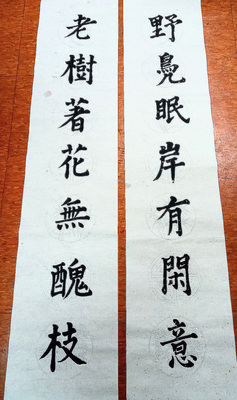 野鳧眠岸有閑意
老樹著花無醜枝